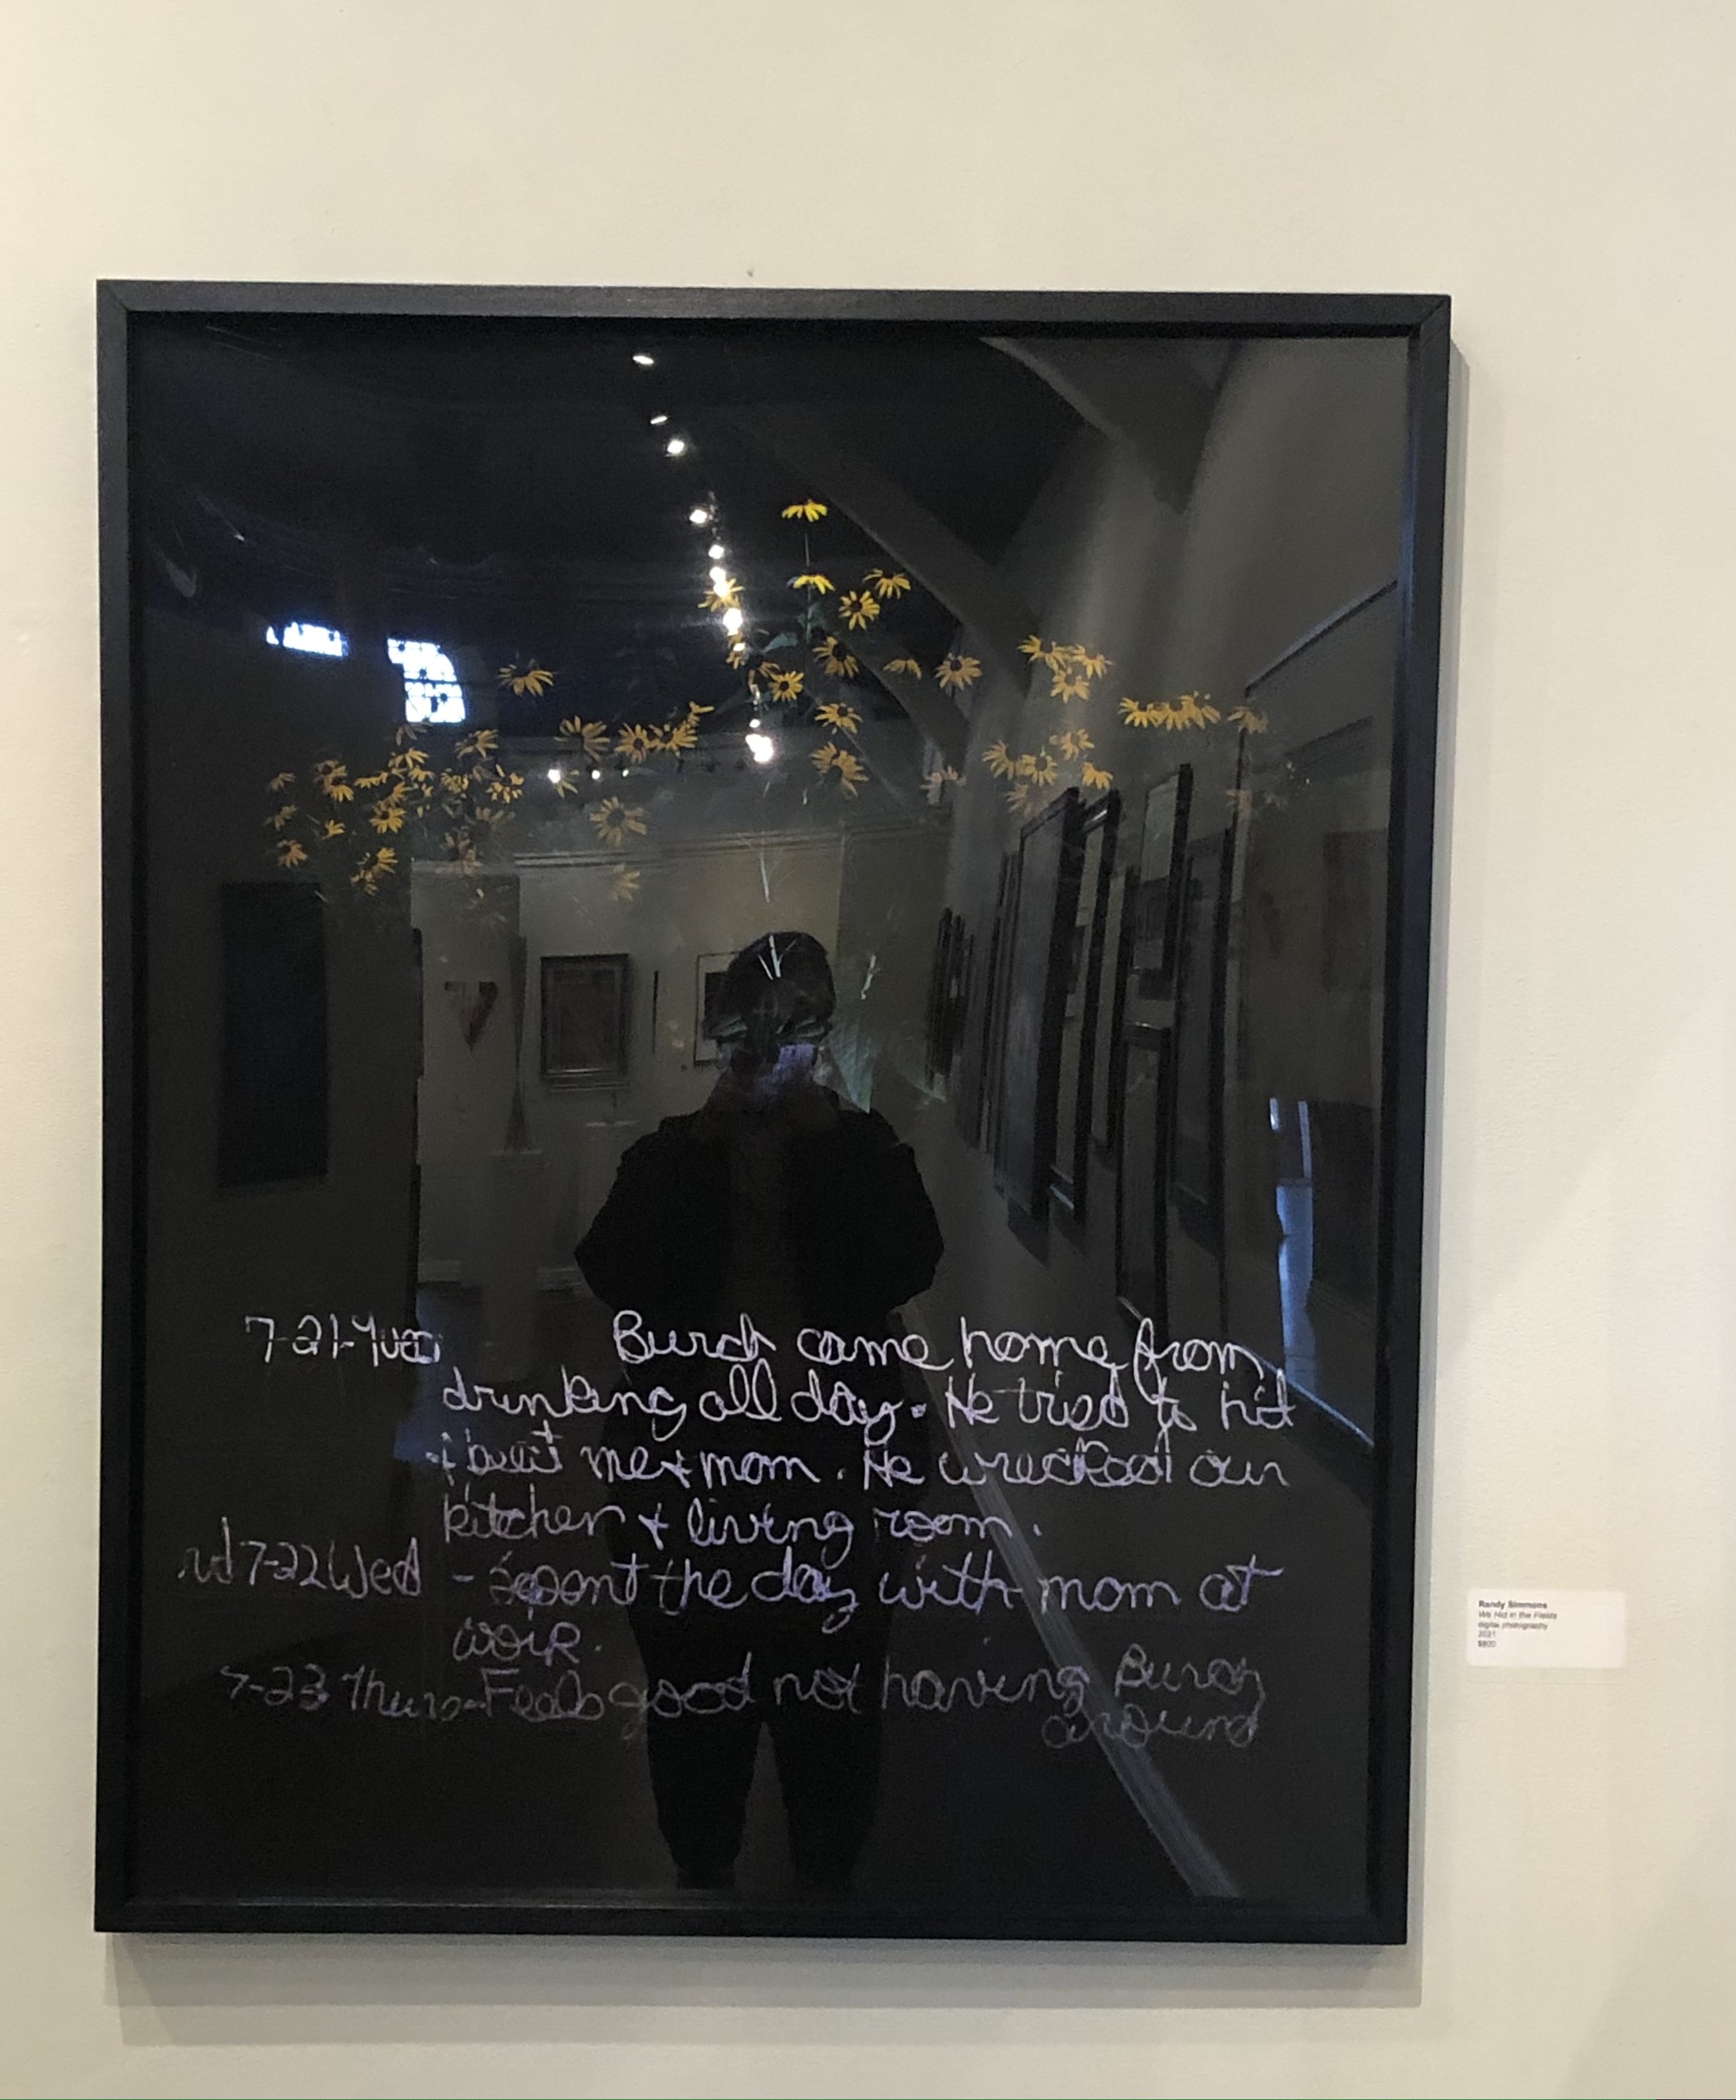 7-21-Tues Burch came home from
drinking all day. He tried to hid
+ beat me + mom. He wrecked our
kitchen + living room.
7-22 Wed - Spent the day with mom at
work.
7-23 Thurs - Feels good not having Burch
around
Randy Simmons
We Hid in the Fields
digital photography
2021
$800